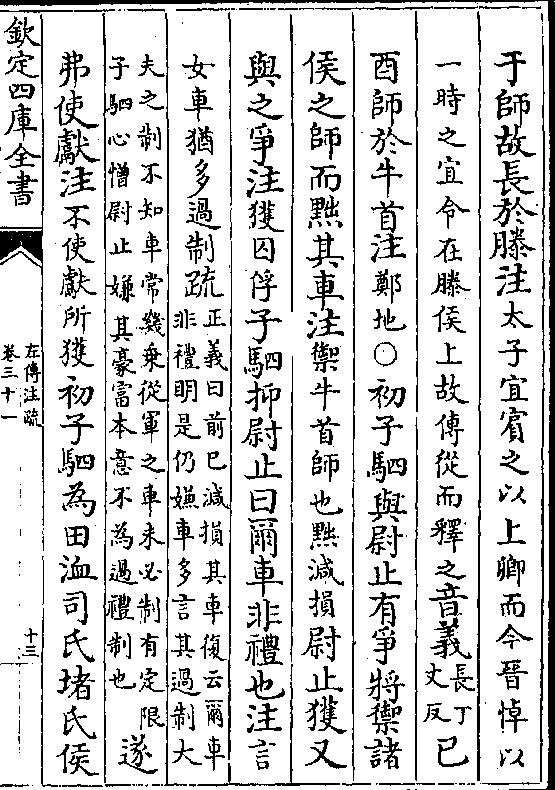 于師故長於滕注太子宜賓之以上卿而今晉悼以
一時之宜令在滕侯上故傳從而釋之音義長丁
丈反已
酉師於牛首注鄭地○初子駟與尉止有爭將禦諸
侯之師而黜其車注禦牛首師也黜減損尉止獲又
與之爭注獲囚俘子駟抑尉止曰爾車非禮也注言
女車猶多過制疏正義曰前已減損其車復云爾車
非禮明是仍嫌車多言其過制大
夫之制不知車常幾乗從軍之車未必制有定限
子駟心憎尉止嫌其豪富本意不為過禮制也遂
弗使獻注不使獻所獲初子駟為田洫司氏堵氏侯
欽定四庫全書
左傳注疏
卷三十一
十三